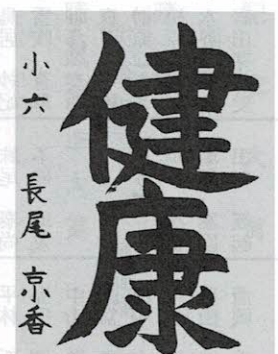 健康
小六 長尾 京香